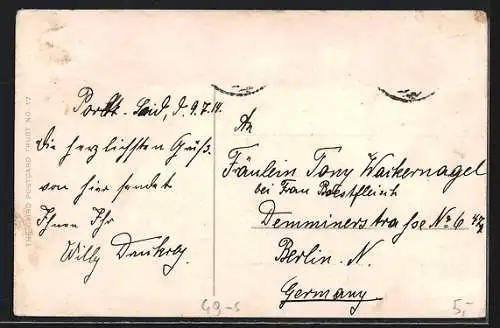 Port-Said, d. 9.7.14.
Die herzlichsten Grüße
von hier sendet
Ihnen Ihr
Willy
An
Fräulein Tony Wackernagel
bei Frau
Demminerstrasse No 6
Berlin. N.
Germany
THE CAIRO POSTCARD TRUST NO. 17
49-s
5,-